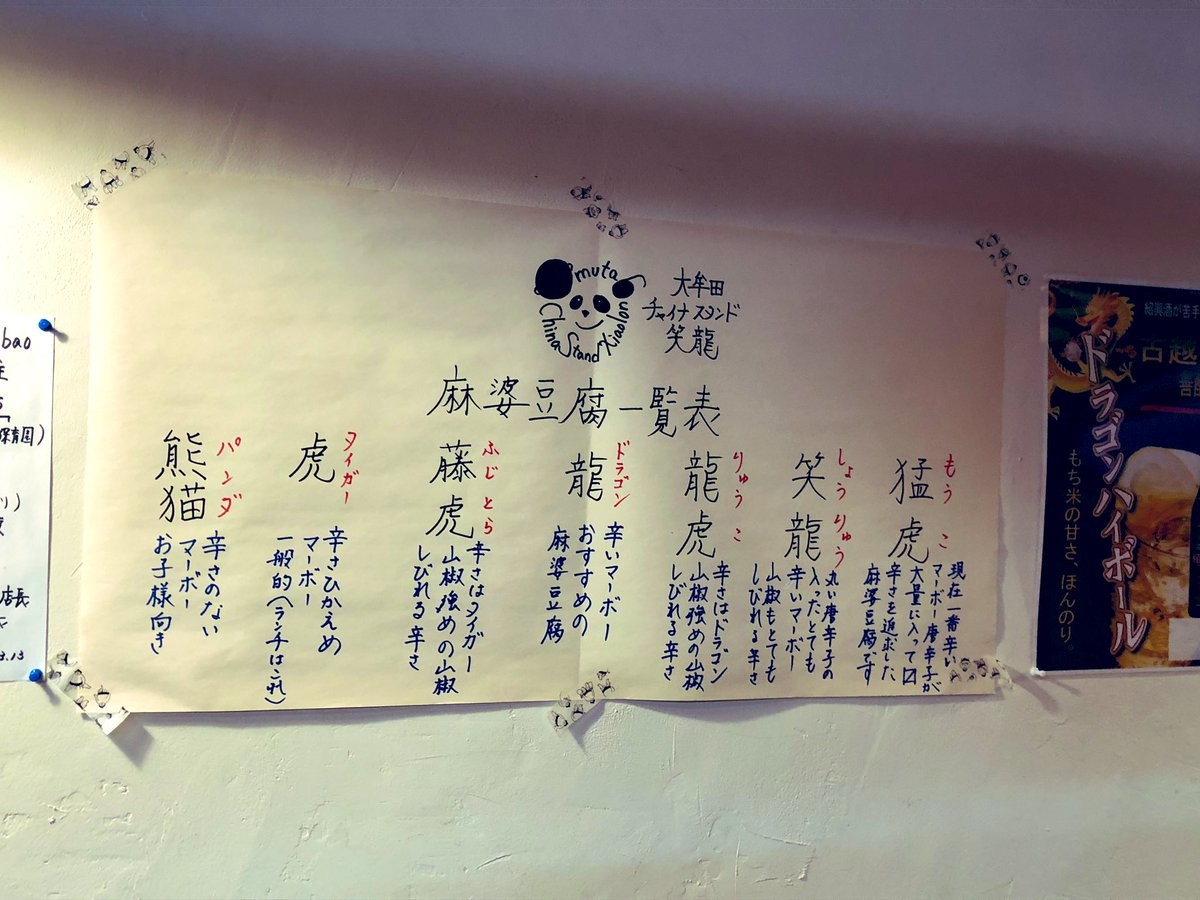 Omuta
China Stand Xiaolong
大牟田
チャイナスタンド
笑龍
麻婆豆腐一覧表
猛虎
もうこ
現在一番辛い
マーボー唐辛子が
大量に入って
辛さを追求した
麻婆豆腐です
笑龍
しょうりゅう
丸い唐辛子の
入ったとても
辛いマーボー
山椒もとても
しびれる辛さ
龍虎
りゅうこ
辛さはドラゴン
山椒強めの山椒
しびれる辛さ
龍
ドラゴン
辛いマーボー
おすすめの
麻婆豆腐
藤虎
ふじとら
辛さはタイガー
山椒強めの山椒
しびれる辛さ
虎
タイガー
辛さひかえめ
マーボー
一般的(ランチはこれ)
熊猫
パンダ
辛さのない
マーボー
お子様向き
紹興酒が苦手
古越
ドラゴンハイボール
もち米の甘さ、ほんのり。
bao
店長
3.13